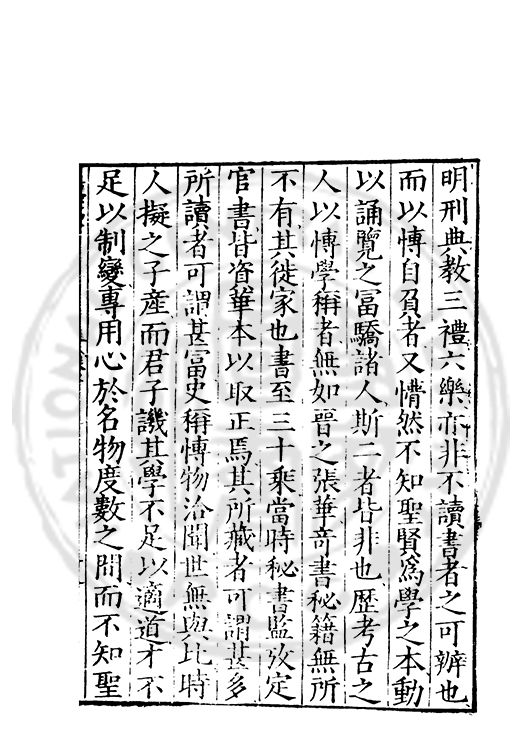 明刑典教三禮六樂亦非不讀書者之可辨也
而以愽自負者又懵然不知聖賢爲學之本動
以誦覽之冨驕諸人斯二者皆非也歷考古之
人以愽學稱者無如晉之張華竒書秘籍無所
不有其徙家也書至三十乘當時秘書監攷定
官書皆資華本以取正焉其所藏者可謂甚多
所讀者可謂甚冨史稱愽物洽聞世無與比時
人擬之子產而君子譏其學不足以適道才不
足以制變專用心於名物度數之間而不知聖